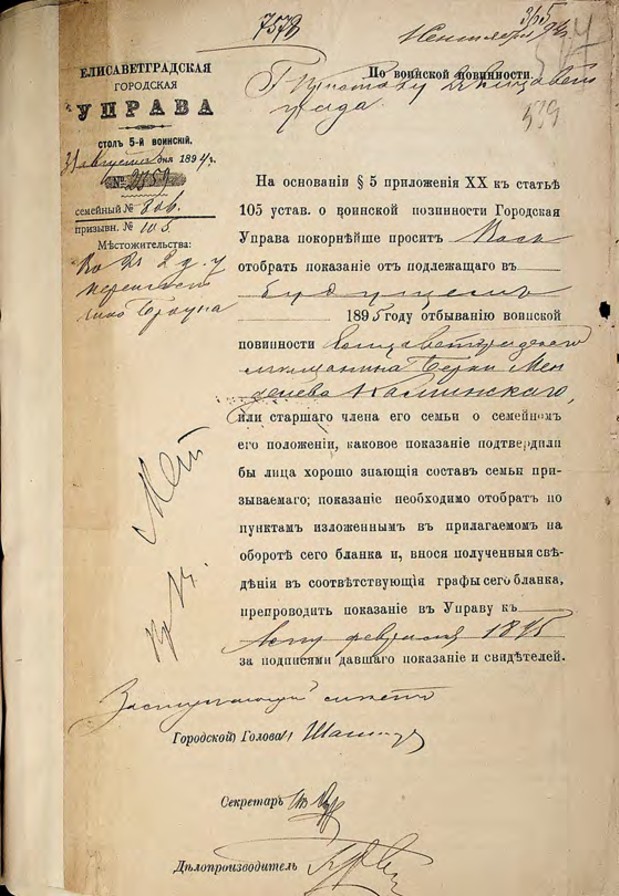 7578
3/5
Сентября
По воинской повинности.
Г. Приставу Елисавет
града.
539
ЕЛИСАВЕТГРАДСКАЯ
ГОРОДСКАЯ
УПРАВА
столъ 5-й воинскій.
31 августа дня 1894 г.
№
семейный № 806.
призывн. № 105.
Мѣстожительства:
На основаніи § 5 приложенія XX къ статьѣ
105 устав. о воинской повинности Городская
Управа покорнѣйше проситъ Васъ
отобрать показаніе отъ подлежащаго въ
будущемъ
1895 году отбыванію воинской
повинности Елисаветградскаго
мѣщанина Берки Мен
делева Калинскаго,
или старшаго члена его семьи о семейномъ
его положеніи, каковое показаніе подтвердили
бы лица хорошо знающія составъ семьи при-
зываемаго; показаніе необходимо отобрать по
пунктамъ изложеннымъ въ прилагаемомъ на
оборотѣ сего бланка и, внося полученныя свѣ-
дѣнія въ соотвѣтствующія графы сего бланка,
препроводить показаніе въ Управу къ
февраля 1895
за подписями давшаго показаніе и свидѣтелей.
Заступающій мѣсто
Городской Голова
Секретарь
Дѣлопроизводитель